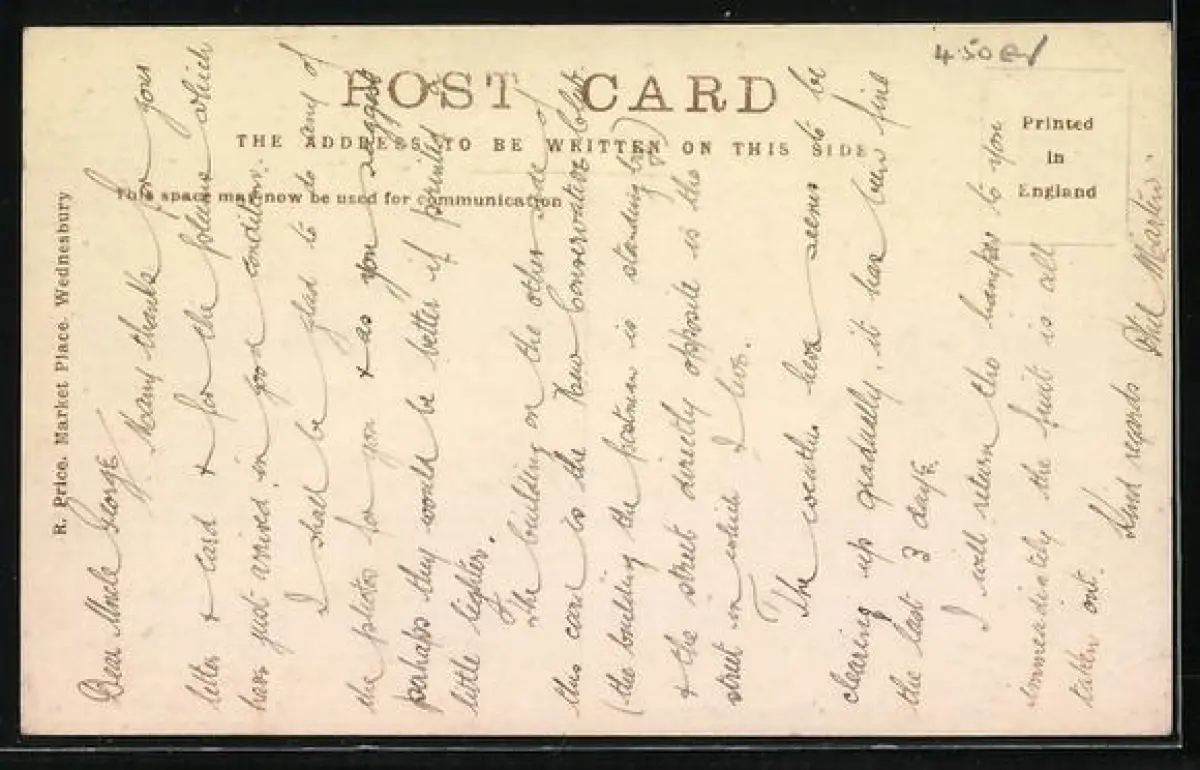 4.50
POST CARD
THE ADDRESS TO BE WRITTEN ON THIS SIDE
This space may now be used for communication
Printed
in
England
R. Price. Market Place. Wednesbury
Dear Uncle George
Many thanks for your
letter & card & for the plums which
have just arrived in good condition.
I shall be glad to to any of
the photos for you & as you suggest
perhaps they would be better if printed a
little lighter.
The building on the other side of
this card is the New Conservative Club.
(the building the postman is standing by)
& the street directly opposite is the
street in which I live.
The weather here seems to be
clearing up gradually, it has been fine
the last 3 days.
I will return the hamper to you
immediately the fruit is all
taken out.
Kind regards
Phil Martin.